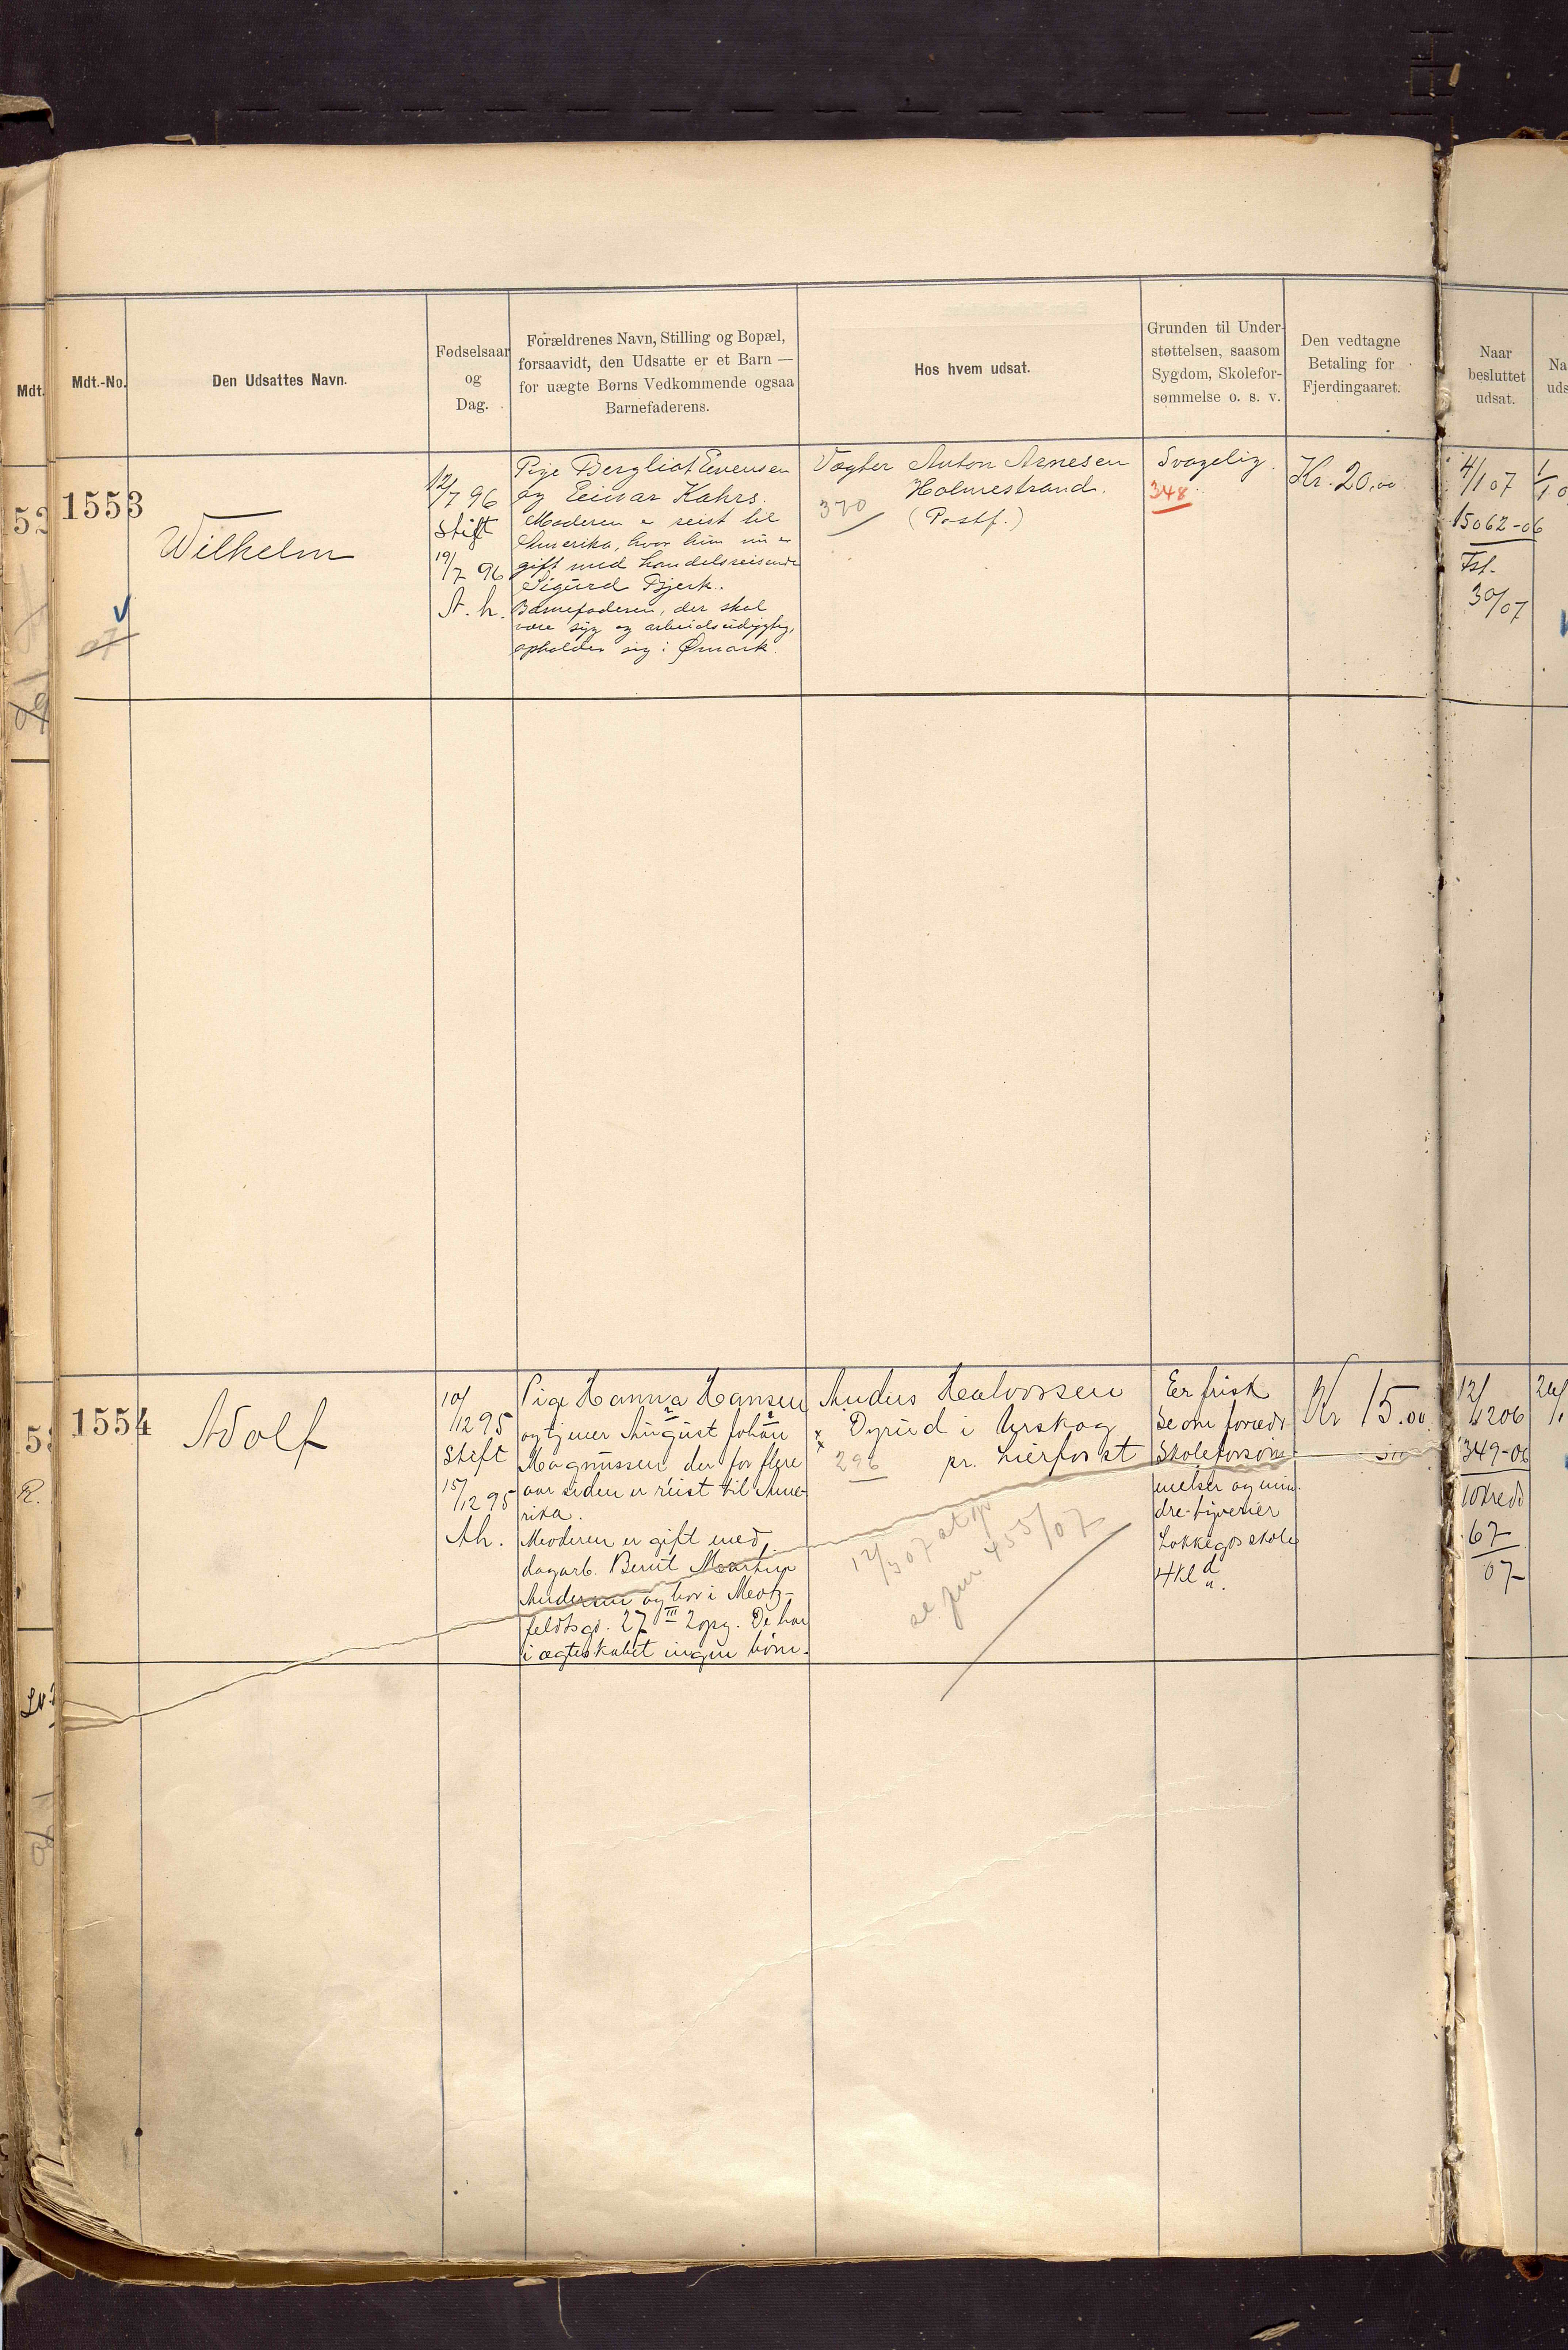 Mdt.-No.
Den Udsattes Navn.
Fødselsaar
og
Dag.
Forældrenes Navn, Stilling og Bopæl,
forsaavidt, den Udsatte er et Barn —
for uægte Børns Vedkommende ogsaa
Barnefaderens.
Hos hvem udsat.
Grunden til Under-
støttelsen, saasom
Sygdom, Skolefor-
sømmelse o. s. v.
Den vedtagne
Betaling for
Fjerdingaaret.
Naar
besluttet
udsat.
1553
Wilhelm
12/7 96
Stift
19/7 96
A. h.
Pige Bergliot Evensen
og Einar Kahrs.
Moderen er reist til
Amerika, hvor hun nu er
gift med handelsreisende
Sigurd Bjerk.
Barnefaderen, der skal
være syg og arbeidsudygtig,
opholder sig i Ømark.
Vægter Anton Arnesen
Holmestrand.
(Postf.)
370
Svagelig.
348
Kr. 20,00
4/1 07
15062-06
Fsf.
30/07
1554
Adolf
10/12 95
Stift
15/12 95
Ah.
Pige Hanna Hansen
og tjener August Johan
Magnussen, der for flere
aar siden er reist til Ame-
rika.
Moderen er gift med
dagarb. Bernt Martin
Andersen og bor i Meotz-
feldtsgd. 27 III 2 opg. De har
i ægteskabet ingen børn.
Anders Halvorsen
Dyrud i Urskog
pr. Lierfoss st
296
12/3 07 st op
se jur 455/07
Er frisk
Se om forredt
Skoleforsøm-
melser og min-
dre tyverier
Lakkegds skole
4 kl d
Kr 15.00
12/12 06
349-06
67
07